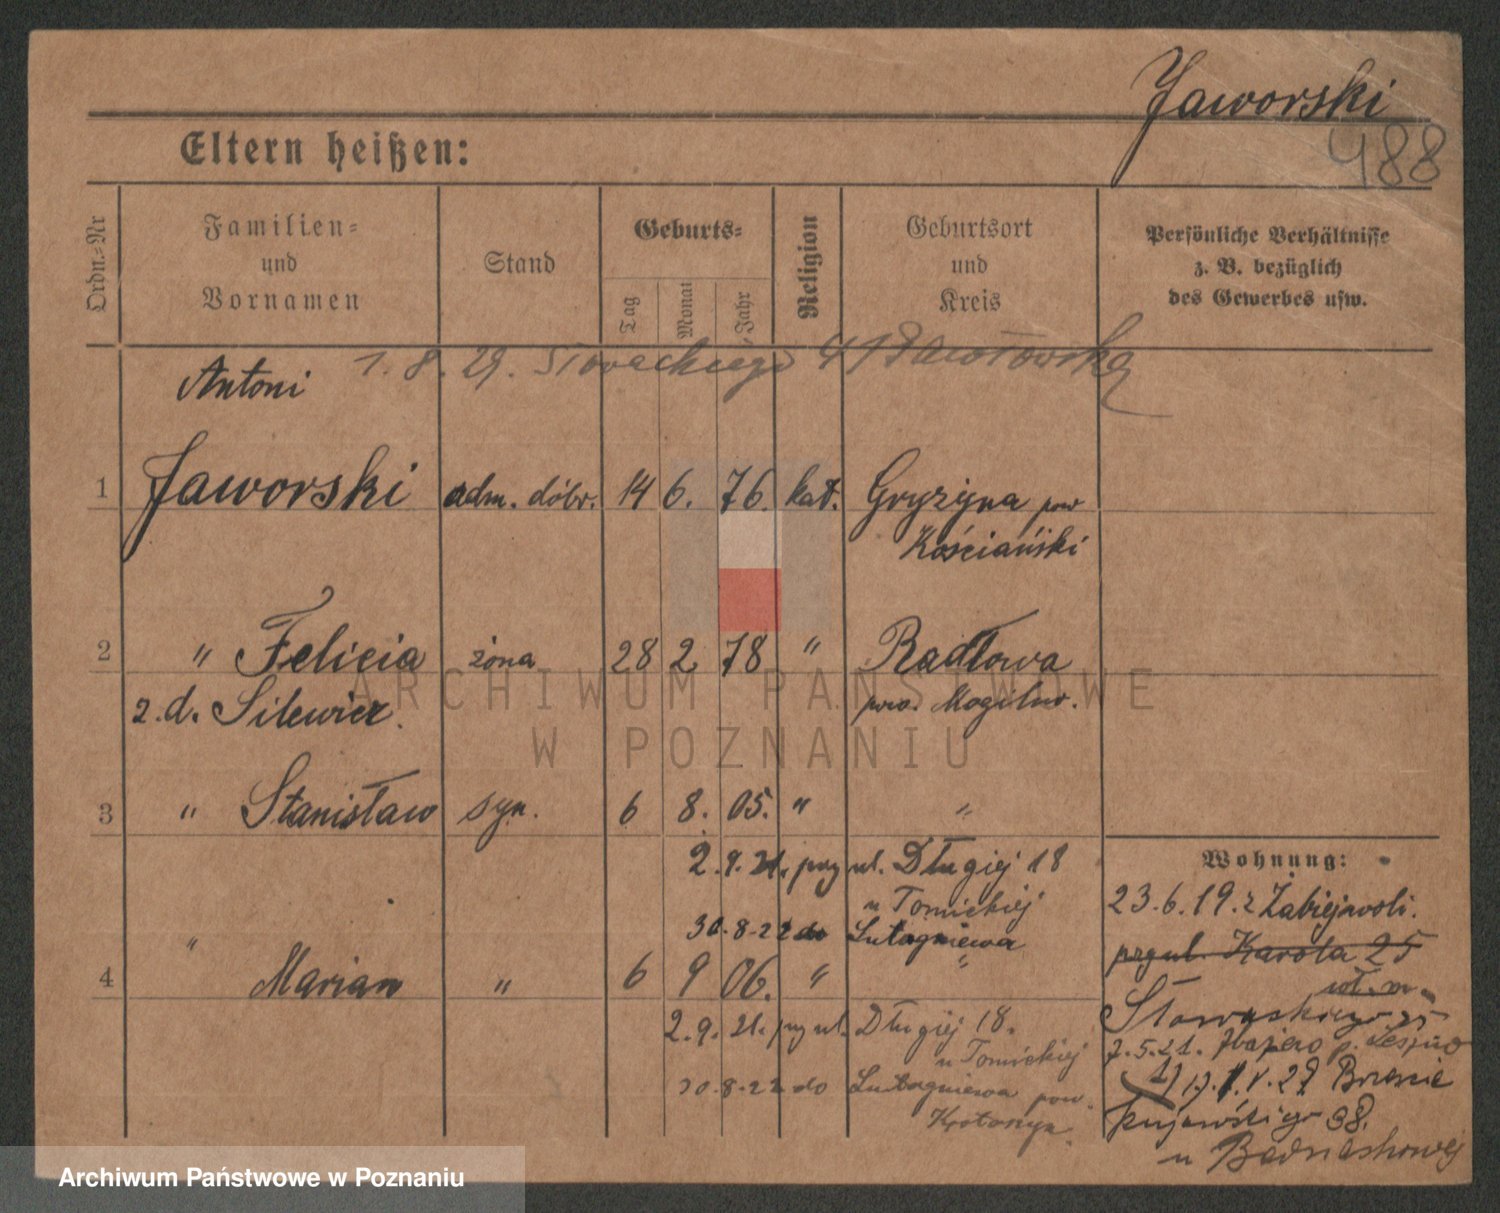 Jaworski
488
Eltern heißen:
Ordn.-Nr
Familien- und Vornamen
Stand
Geburts-
Tag
Monat
Jahr
Religion
Geburtsort und Kreis
Persönliche Verhältnisse
z. B. bezüglich
des Gewerbes usw.
1. 8. 29. Słowackiego 41 Pawłowska
Antoni
1 Jaworski adm. dóbr. 14 6. 76. kat. Gryżyna pow
Kościański
2 " Felicia żona 28 2 78 " Radłowa
z. d. Silewicz. pow. Mogilno.
3 " Stanisław syn. 6 8. 05. " "
2. 9. 21. przy ul. Długiej 18
u Tomickiej
30.8.22 do Lutogniewa
4 " Marian " 6 9 06. " "
2. 9. 21. przy ul. Długiej 18.
u Tomickiej
30.8.22 do Lutogniewa pow.
Krotoszyn.
Wohnung:
23.6.19. z Żabiejwoli.
przy ul. Karola 25
wł. m.
7.5.21.
Kujawski
38.
u Bednashowej
ARCHIWUM PAŃSTWOWE
W POZNANIU
Archiwum Państwowe w Poznaniu